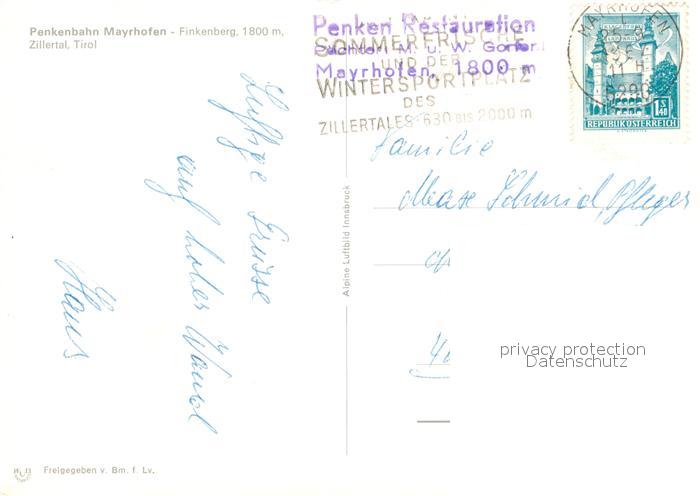 Penkenbahn Mayrhofen - Finkenberg, 1800 m,
Zillertal, Tirol
Penken Restauration
Pächter: M. u. W. Gorfer
Mayrhofen, 1800 m
SOMMERFRISCHE
UND DER
WINTERSPORTPLATZ
DES
ZILLERTALES 630 BIS 2000 m
MAYRHOFEN
6290
1 S 40
REPUBLIK ÖSTERREICH
Luftige Grüsse
auf hoher Wand
Hans
Familie
Max Schmid, Pfleger
Alpine Luftbild Innsbruck
privacy protection
Datenschutz
Freigegeben v. Bm. f. Lv.